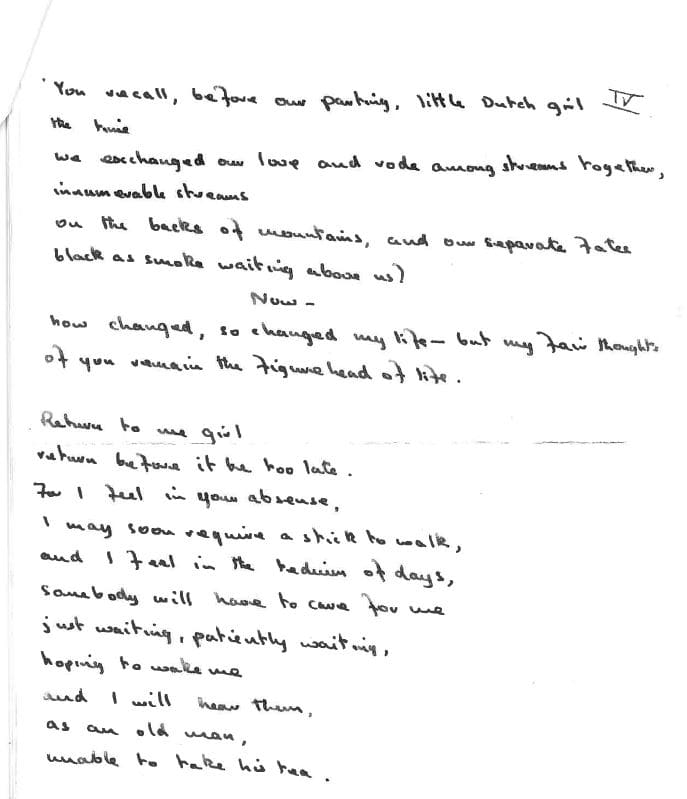 'You recall, before our parting, little Dutch girl IV
the time
we exchanged our love and rode among streams together,
innumerable streams
on the backs of mountains, and our separate fates
black as smoke waiting above us?
Now –
how changed, so changed my life – but my fair thoughts
of you remain the figurehead of life.
Return to me girl
return before it be too late.
For I feel in your absense,
I may soon require a stick to walk,
and I feel in the tedium of days,
somebody will have to care for me
just waiting, patiently waiting,
hoping to wake me
and I will hear them,
as an old man,
unable to take his tea.